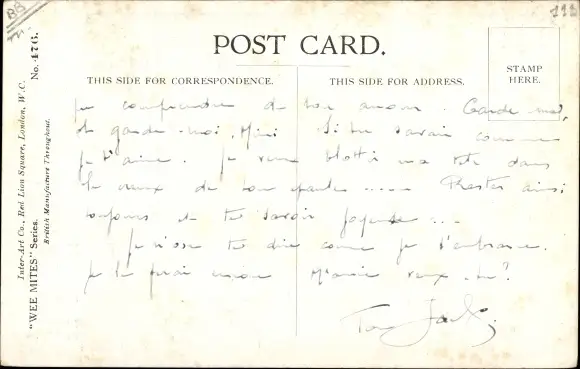 POST CARD.
STAMP
HERE.
THIS SIDE FOR CORRESPONDENCE.
THIS SIDE FOR ADDRESS.
Inter-Art Co., Red Lion Square, London, W.C.
"WEE MITES" Series.
British Manufacture Throughout.
No. 476.
comprendre de ton amour. Garde moi,
et garde-moi, Mimi Si tu savais comme
je t'aime. Je veux blottir ma tête dans
le creux de ton épaule ..... Rester ainsi
toujours et te savoir joyeuse ...
Je n'ose te dire comme je t'embrasse.
Je le ferai encore M'aimer veux-tu?
Ton